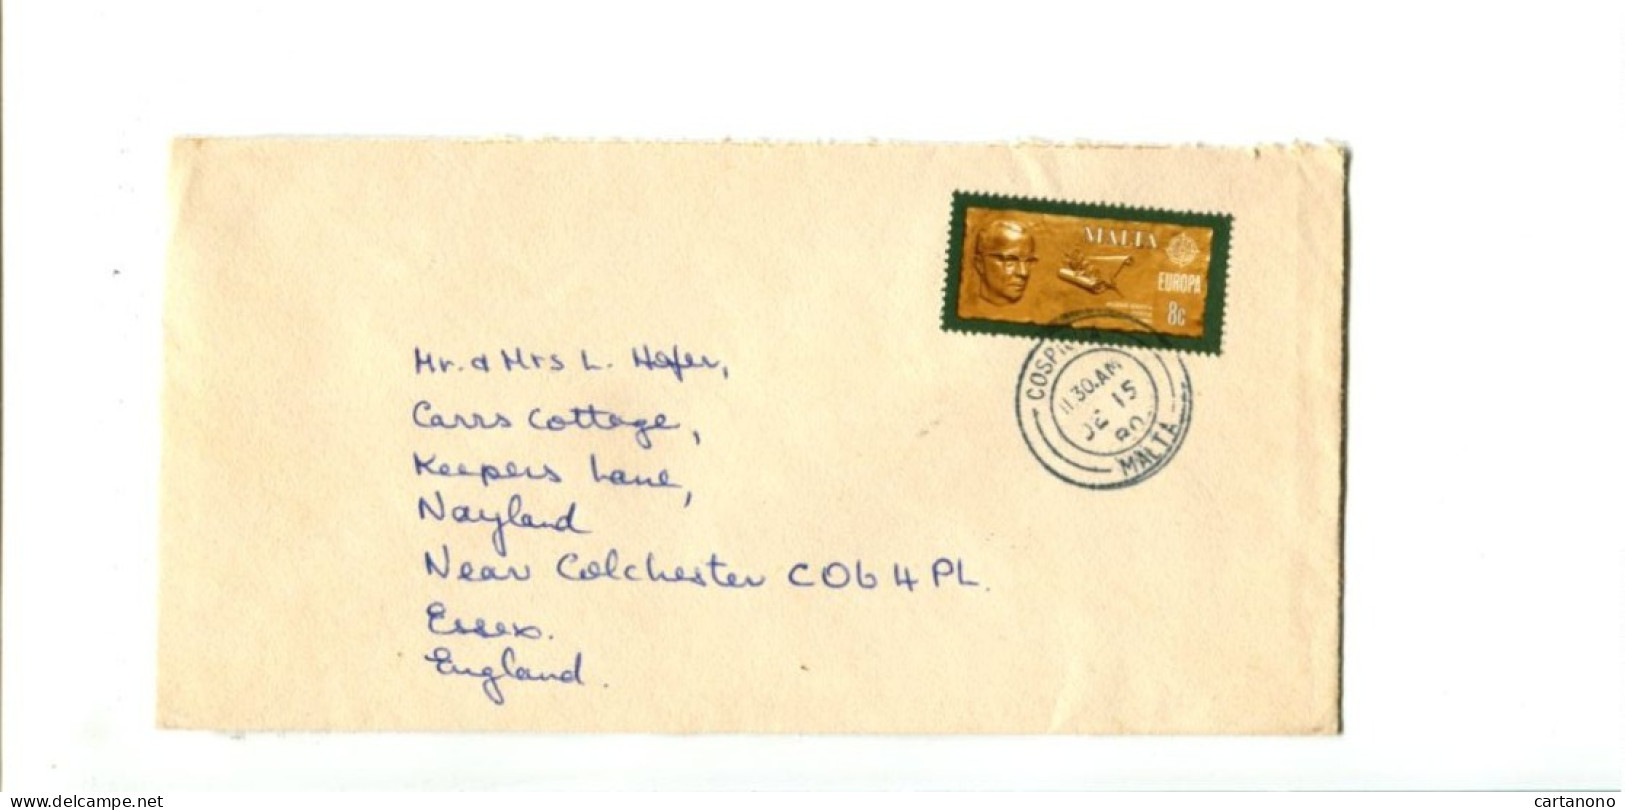 MALTA
EUROPA
8c
COSPICUA
11 30.AM
DE 15
80
MALTA
Mr. & Mrs L. Hofer,
Carrs Cottage,
Keepers Lane,
Nayland
Near Colchester CO6 4PL.
Essex.
England.
www.delcampe.net
cartanono